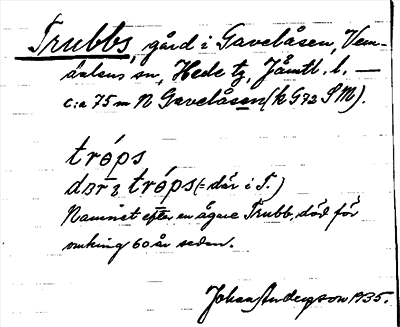 Trubbs, gård i Gavelåsen, Vem-
dalens sn, Hede tg, Jämtl. l. —
c:a 75 m N Gavelåsen (k G72 SM).
tróps
dær ɩ tróps (= där i T.)
Namnet efter en ägare Trubb, död för
omkring 60 år sedan.
Johan Anderson 1935.